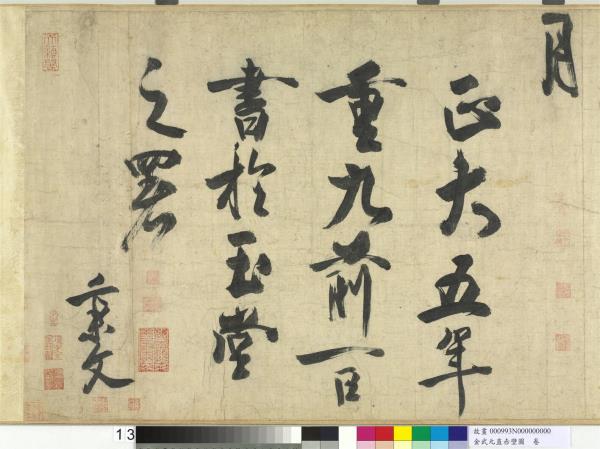 月
正大五年
重九前一日
書於玉堂
之署
秉文
13
故畫 000993N000000000
金武元直赤壁圖 卷